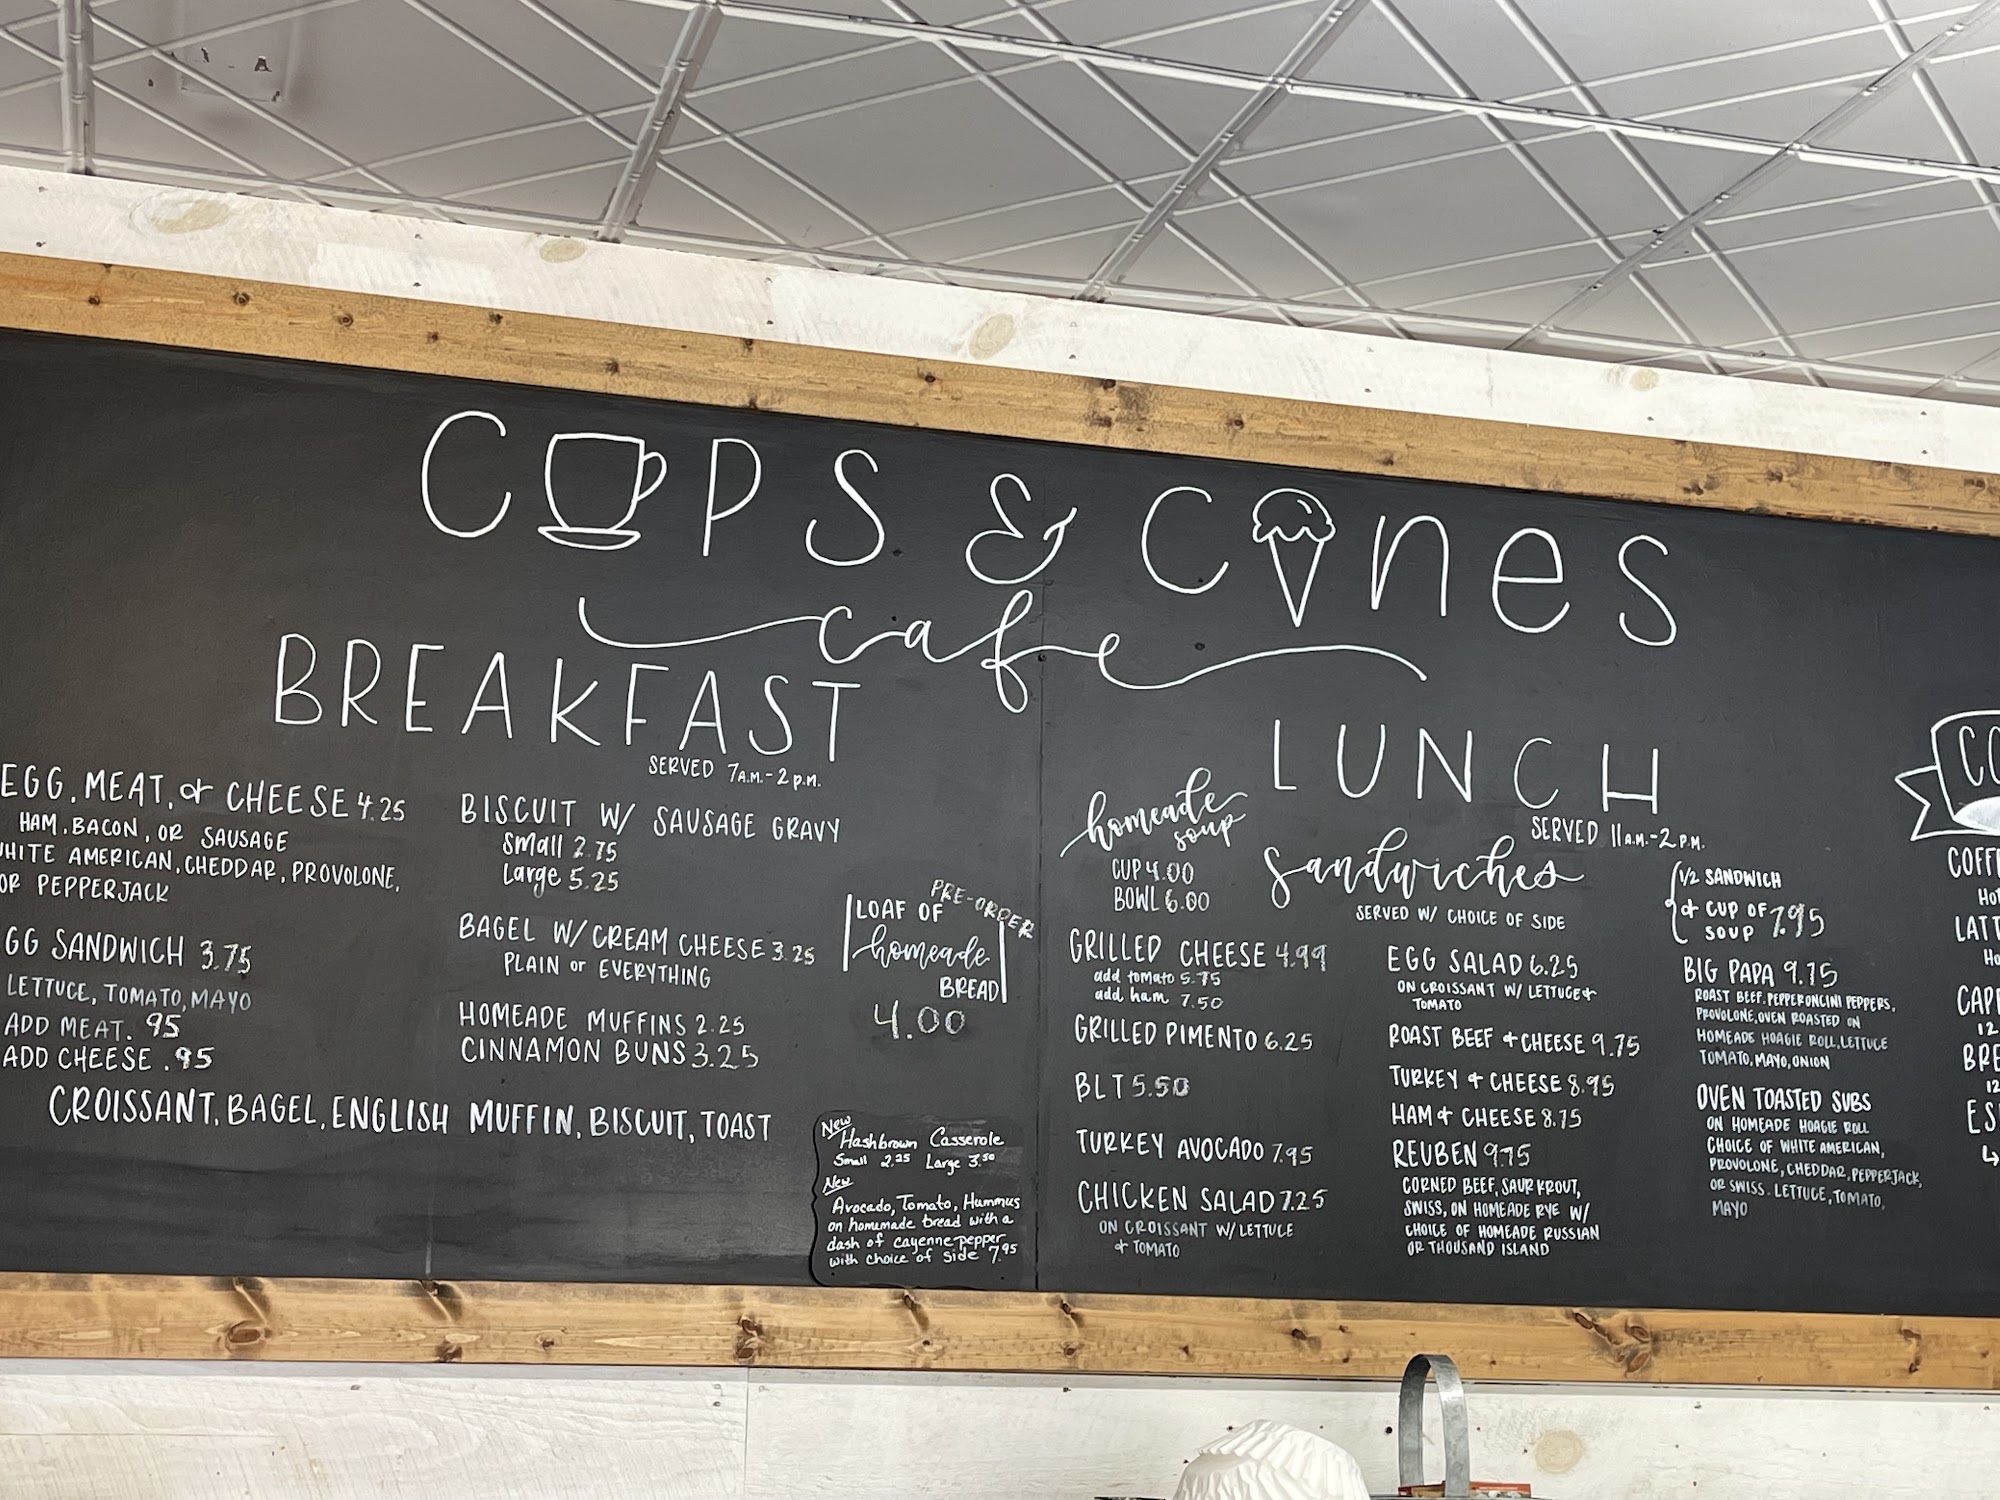 CUPS & CONES
cafe
BREAKFAST
SERVED 7A.M.-2 P.M.
EGG, MEAT, & CHEESE 4.25
HAM, BACON, OR SAUSAGE
WHITE AMERICAN, CHEDDAR, PROVOLONE,
OR PEPPERJACK
GG SANDWICH 3.75
LETTUCE, TOMATO, MAYO
ADD MEAT .95
ADD CHEESE .95
CROISSANT, BAGEL, ENGLISH MUFFIN, BISCUIT, TOAST
BISCUIT W/ SAUSAGE GRAVY
Small 2.75
Large 5.25
BAGEL W/ CREAM CHEESE 3.25
PLAIN or EVERYTHING
HOMEADE MUFFINS 2.25
CINNAMON BUNS 3.25
PRE-ORDER
LOAF OF
homeade
BREAD
4.00
New
Hashbrown Casserole
Small 2.25 Large 3.50
New
Avocado, Tomato, Hummus
on homemade bread with a
dash of cayenne pepper
with choice of side 7.95
LUNCH
SERVED 11 A.M.-2 P.M.
homeade
soup
CUP 4.00
BOWL 6.00
sandwiches
SERVED W/ CHOICE OF SIDE
GRILLED CHEESE 4.99
add tomato 5.75
add ham 7.50
GRILLED PIMENTO 6.25
BLT 5.50
TURKEY AVOCADO 7.95
CHICKEN SALAD 7.25
ON CROISSANT W/ LETTUCE
& TOMATO
EGG SALAD 6.25
ON CROISSANT W/ LETTUCE &
TOMATO
ROAST BEEF & CHEESE 9.75
TURKEY & CHEESE 8.95
HAM & CHEESE 8.75
REUBEN 9.75
CORNED BEEF, SAUR KROUT,
SWISS, ON HOMEADE RYE W/
CHOICE OF HOMEADE RUSSIAN
OR THOUSAND ISLAND
1/2 SANDWICH
& CUP OF
SOUP 7.95
BIG PAPA 9.75
ROAST BEEF, PEPPERONCINI PEPPERS,
PROVOLONE, OVEN ROASTED ON
HOMEADE HOAGIE ROLL, LETTUCE
TOMATO, MAYO, ONION
OVEN TOASTED SUBS
ON HOMEADE HOAGIE ROLL
CHOICE OF WHITE AMERICAN,
PROVOLONE, CHEDDAR, PEPPERJACK,
OR SWISS. LETTUCE, TOMATO,
MAYO
CO
COFF
HO
LATT
HO
CAPP
12
BRE
12
ES